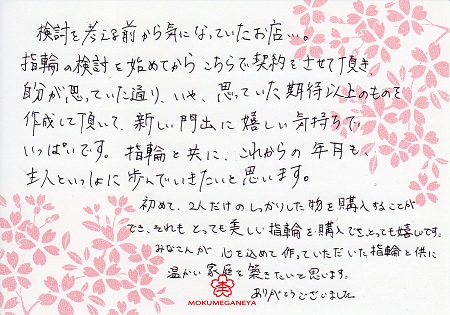 検討を考える前から気になっていたお店…。
指輪の検討を始めてからこちらで契約をさせて頂き、
自分が思っていた通り、いや、思っていた期待以上のものを
作成して頂いて、新しい門出に嬉しい気持ちで
いっぱいです。指輪と共に、これからの年月も、
主人といっしょに歩んでいきたいと思います。
初めて、2人だけのしっかりした物を購入することが
でき、それも とっても美しい指輪を購入でき、とっても嬉しいです。
みなさんが 心を込めて作っていただいた指輪と供に
温かい家庭を築きたいと思います。
ありがとうございました。
MOKUMEGANEYA